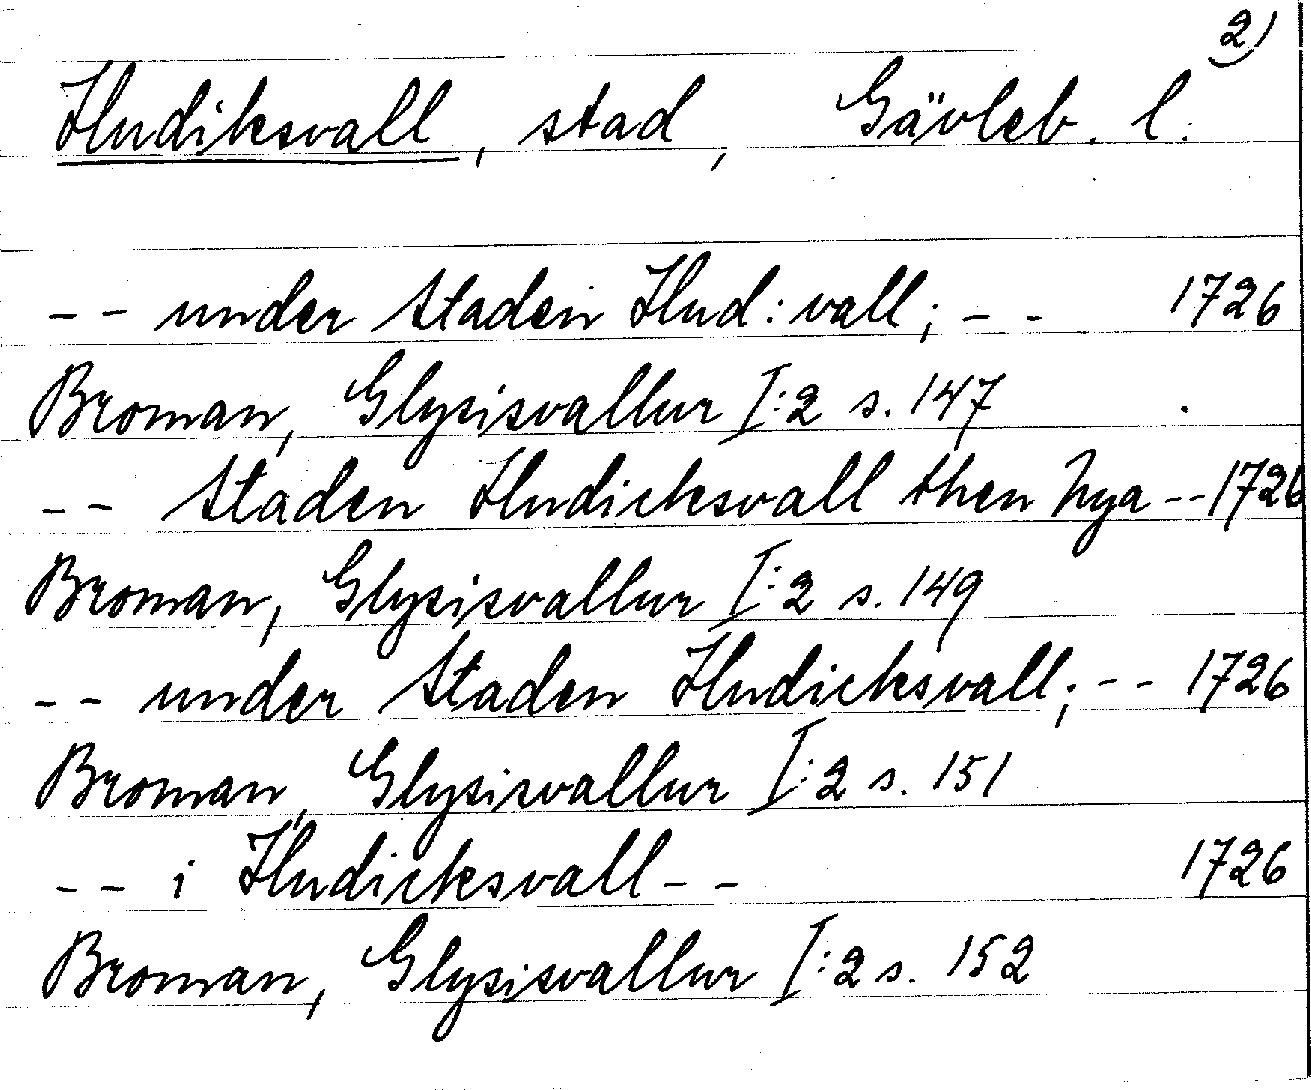 2)
Hudiksvall, stad, Gävleb. l.
-- under Staden Hud:vall; -- 1726
Broman, Glysisvallur I:2 s. 147
-- Staden Hudicksvall then Nya -- 1726
Broman, Glysisvallur I:2 s. 149
-- under Staden Hudicksvall; -- 1726
Broman, Glysisvallur I:2 s. 151
-- i Hudicksvall -- 1726
Broman, Glysisvallur I:2 s. 152